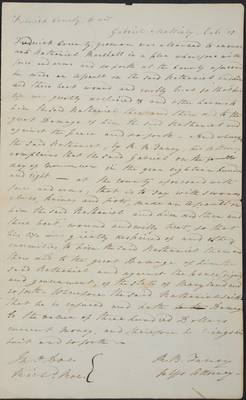 Frederick County to wit
Gabriel McKinsey late of
Frederick County yeoman was attached to answer
unto Nathaniel Marshall in a plea wherefore with
force and arms and so forth at the County aforesaid
he made an assault on the said Nathaniel and him
did there beat wound and evilly treat so that his
life was greatly despaired of and other harms to
him the said Nathaniel then there did to the
great Damage of him the said Nathaniel and
against the peace and so forth. And whereupon
the said Nathaniel, by R. B. Taney, his attorney
complains that the said Gabriel on the
day of in the year eighteen hundred
and eight at the County aforesaid with
force and arms, that is to say with swords
clubs, knives and fists, made an assault on
him the said Nathaniel and him did then and
there beat, wound and evilly treat, so that
his life was greatly despaired of and other
enormities to him the said Nathaniel then and
there did to the great Damage of him the
said Nathaniel and against the peace,
and government, of the state of Maryland and
so forth. Wherefore the said Nathaniel saith
that he is injured and hath Damage
to the value of three hundred Dollars
current money, and therefore he brings
suit and so forth
Jno Doe
Richd Roe
R. B. Taney
Attorney